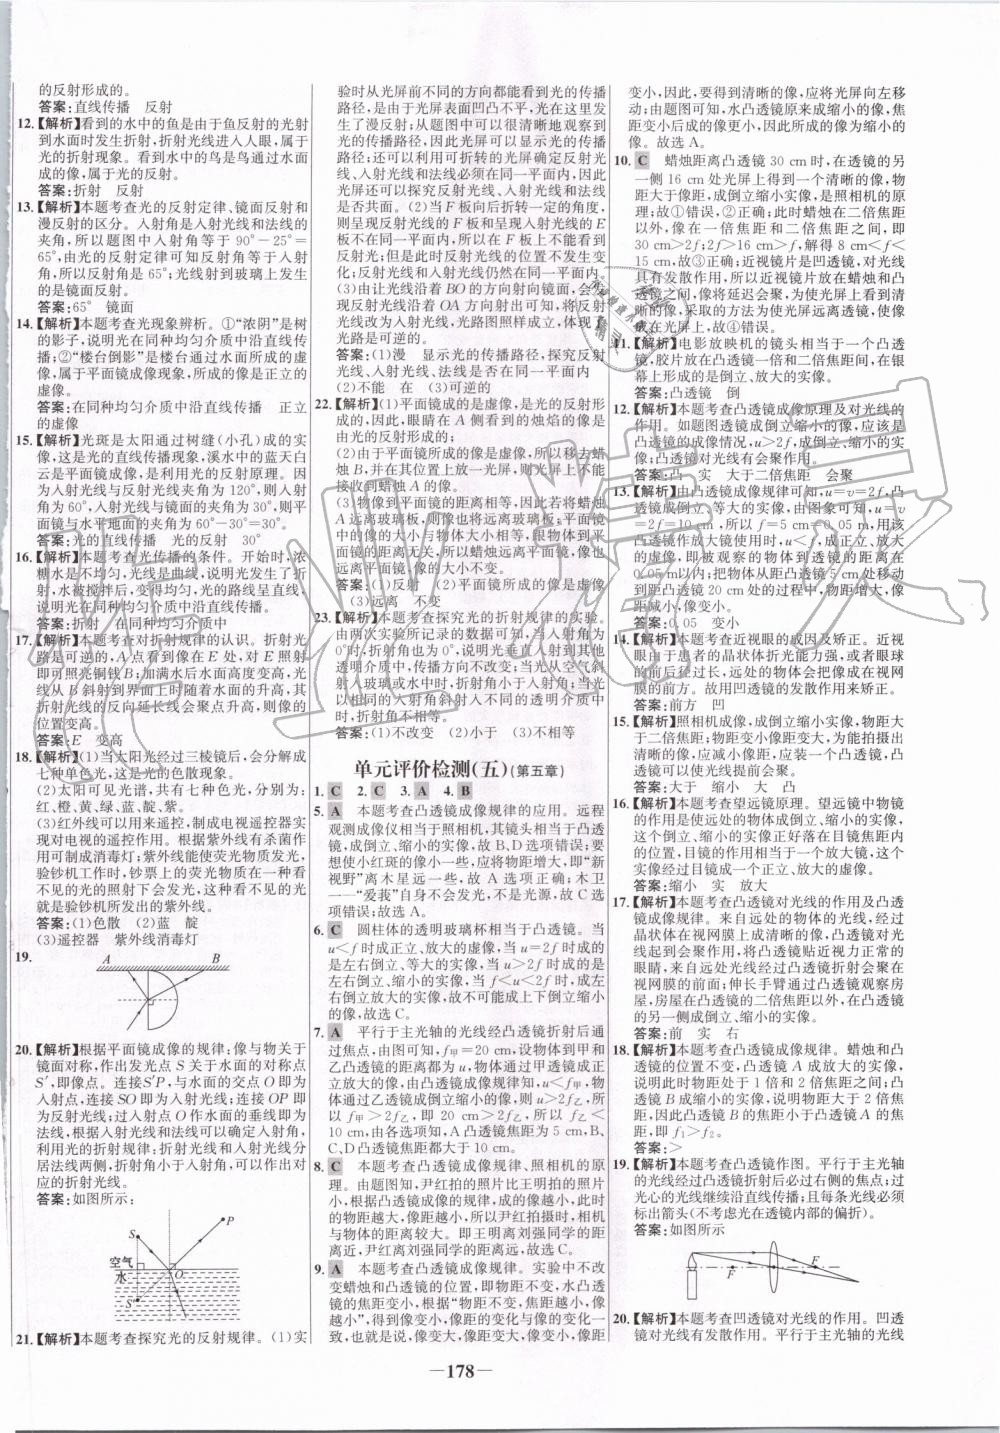 的反射形成的。
答案:直线传播　反射
12.【解析】看到的水中的鱼是由于鱼反射的光射
到水面时发生折射,折射光线进入人眼,属于
光的折射现象。看到水中的鸟是鸟通过水面
成的像,属于光的反射。
答案:折射　反射
13.【解析】本题考查光的反射定律、镜面反射和
漫反射的区分。入射角是入射光线和法线的
夹角,所以题图中入射角等于 90°－25°＝
65°,由光的反射定律可知反射角等于入射
角,所以反射角是 65°;光线射到玻璃上发生
的是镜面反射。
答案:65°　镜面
14.【解析】本题考查光现象辨析。①“浓阴”是树
的影子,说明光在同种均匀介质中沿直线传
播;②“楼台倒影”是楼台通过水面所成的虚
像,属于平面镜成像现象,所成的像是正立的
虚像。
答案:在同种均匀介质中沿直线传播　正立
的虚像
15.【解析】光斑是太阳通过树缝(小孔)成的实
像,这是光的直线传播现象,溪水中的蓝天白
云是平面镜成像,是利用光的反射原理。因
为入射光线与反射光线夹角为 120°,则入射
角为60°,入射光线与镜面夹角为30°,则平
面镜与水平地面的夹角为 60°－30°＝30°。
答案:光的直线传播　光的反射　30°
16.【解析】本题考查光传播的条件。开始时,浓
糖水是不均匀,光线是曲线,说明光发生了折
射,水被搅拌后,变得均匀,光的路线呈直线,
说明光在同种均匀介质中沿直线传播。
答案:折射　在同种均匀介质中
17.【解析】本题考查对折射规律的认识。折射光
路是可逆的,A 点看到像在 E 处,对 E 照射
即可照亮铜钱B;加满水后水面高度变高,光
线从 B 斜射到界面上时随着水面的升高,其
折射光线的反向延长线会聚点升高,则像的
位置变高。
答案:E　变高
18.【解析】(1)当太阳光经过三棱镜后,会分解成
七种单色光,这是光的色散现象。
(2)太阳可见光谱,共有七种色光,分别为:
红、橙、黄、绿、蓝、靛、紫。
(3)红外线可以用来遥控,制成电视遥控器实
现对电视的遥控作用。根据紫外线有杀菌作
用可制成消毒灯;紫外线能使荧光物质发光,
验钞机工作时,钞票上的荧光物质在一种看
不见的光的照射下会发光,这种看不见的光
就是验钞机所发出的紫外线。
答案:(1)色散　(2)蓝　靛
(3)遥控器　紫外线消毒灯
19.
A　B
20.【解析】根据平面镜成像的规律:像与物关于
镜面对称,作出发光点 S 关于水面的对称点
S′,即像点。连接S′P,与水面的交点 O 即为
入射点,连接 SO 即为入射光线;连接 OP 即
为反射光线;过入射点 O 作水面的垂线即为
法线,根据入射光线和法线可以确定入射角,
利用光的折射规律:折射光线和入射光线分
居法线两侧,折射角小于入射角,可以大致对
应的折射光线。
答案:如图所示:
P
S
空气
水
O
S′
21.【解析】本题考查探究光的反射规律。(1)实
验时从光屏前不同的方向都能看到光的传播
路径,是由于光屏表面凹凸不平,光在这里发
生了漫反射。从题图中很清晰地观察到
光的传播路径,就要求入射光线、反射光线
和法线必须在同一平面内,可折转的光屏除
利用上面可折转的光屏确定反射光
线、入射光线和法线必须在同一平面内,此外
还可以探究反射光线、入射光线和法线
是否共面。(2)当 F 板向后折转一定的角度,
则呈现反射光线的 F 板和呈现入射光线的 E
板不在同一平面内,所以在 F 板上不能看到
反射光;但此时反射光线的位置不发生变
化;反射光线与入射光线仍然在同一平面内。
(3)由让光线沿着 BO 的方向射向镜面,会
发现反射光线沿着 OA 方向射出可知,将反射
光线改为入射光线,光路图照样成立,体现了
光路是可逆的。
答案:(1)漫　显示光的传播路径,探究反射
光线、入射光线、法线是否在同一平面内
(2)不能　在　(3)可逆的
22.【解析】(1)平面镜成的是虚像,是光的反射形
成的,因此,眼睛在 A 侧看到的烛焰的像是
由光的反射形成的;
(2)由于平面镜所成的像是虚像,所以移去蜡
烛 B,并在其位置上放一光屏,则不能在光屏
上看到蜡烛 A 的像。
(3)物像到平面镜的距离相等,因此若将蜡烛
A 远离玻璃板,则像也将远离玻璃板;平面镜
中的像的大小与物体大小相等,跟物体到平
面镜的距离无关,所以蜡烛远离平面镜,像也
远离平面镜,但像的大小不变。
答案:(1)反射　(2)平面镜所成的像是虚像
(3)远离　不变
23.【解析】本题考查探究光的折射规律的实验。
由两次实验所记录的数据可知,当入射角为
0°时,折射角也为0°,说明光垂直入射到透
明介质时传播方向不改变;当光从空气斜
射入玻璃或水中时,折射角小于入射角;当光
以相同的入射角斜射入不同的透明介质中
时,折射角不相等。
答案:(1)不改变　(2)小于　(3)不相等
单元评价检测(五)(第五章)
1. C　2. C　3. A　4. B
5. A　本题考查凸透镜成像规律的应用。远程
观测成像仪相当于照相机,其镜头相当于凸透
镜,成倒立、缩小的实像,故 B、D 选项错误;要
想使小红斑的像小一些,应将物距增大,即“新
视野”离木星远一些,故 A 选项正确;木卫
一“爱莪”自身不会发光,不是光源,故 C 选
项错误;故选 A。
6. C　圆柱体的透明玻璃杯相当于凸透镜。当
u＜f 时成正立、放大的虚像,当 u＝2f 时成的
是左右倒立、等大的实像,当 u＞2f 时成的是
左右倒立、缩小的实像,当 f＜u＜2f 时,成左
右倒立放大的实像,故不可能成上下倒立缩小
的像,故选 C。
7. A　平行于主光轴的光线经凸透镜折射后通
过焦点,由图可知,f甲＝20 cm,设物体到甲和
乙凸透镜的距离都为 u,物体通过甲透镜成正
立放大的像,由凸透镜成像规律知,u＜f甲,
物体通过乙透镜成倒立缩小的像,则 u＞2f乙,所
以 f甲＞2f乙,即 20 cm＞2f乙,所以 f乙＜
10 cm,由各选项知,A 凸透镜焦距为 5 cm,B、
C、D凸透镜焦距都大于 10 cm。
8. C　本题考查凸透镜成像规律、照相机的原
理。由题图知,尹红拍的照片比王明拍的照片
小,根据凸透镜成像的规律,成的像越小,此时
的物距越大,像距越小,尹红拍摄时,相机与物
体的距离较大。即王明离刘强同学的距
离近,尹红离刘强同学的距离远,故选 C。
9. A　本题考查凸透镜成像规律。实验中不改
变蜡烛和凸透镜的位置,即物距不变,水凸透
镜的焦距变小,根据“物距不变,焦距越小,像
越小”的规律,像距的变化与像的变化一
致,也就是说,像变大,像距变大,像变小,像距
变小,因此,要得到清晰的像,应将光屏向左移
动;由题图可知,水凸透镜原来成缩小的像,焦
距变小后成的像更小,因此,仍为缩小的
像。故选 A。
10. C　蜡烛距离凸透镜 30 cm 时,在透镜的另
一侧 16 cm 处光屏上得到一个清晰的像,
物距大于像距,成倒立缩小实像,是照相机的原
理;故①错误,②正确;此时蜡烛在二倍焦距
以外,像在一倍焦距和二倍焦距之间,即
30 cm＞2f;2f＞16 cm＞f,解得 8 cm＜f＜
15 cm,故③正确;近视镜片是凹透镜,对光线
具有发散作用,所以近视镜片放在蜡烛和凸
透镜之间,像将延迟会聚,为使光屏看到清晰
的像,采取的方法为使光屏远离透镜,使像
成在光屏上,故④错误。
11.【解析】电影放映机的镜头相当于一个凸透
镜,胶片放在凸透镜一倍和二倍焦距间,在银
幕上形成的是倒立、放大的实像。
答案:凸透镜　倒
12.【解析】本题考查凸透镜成像原理及对光线的
作用。如题图透镜成倒立缩小的像,应该是
凸透镜的成像情况,u＞2f,成倒立、缩小的实
像;凸透镜对光线有会聚作用。
答案:凸　实　大于二倍焦距　会聚
13.【解析】由凸透镜成像规律可知,u＝v＝2f,凸
透镜成倒立、等大的实像,由图象可知,u＝v
＝2f＝10 cm,所以 f＝5 cm＝0.05 m,用该
凸透镜作放大镜使用时,u＜f,成正立、放大
的虚像,即被观察的物体到透镜的距离在
0.05 m以内;把物体从距凸透镜 5 cm处移动
到距凸透镜 20 cm 处的过程中,物距增大,像
距减小,像变小。
答案:0.05　变小
14.【解析】本题考查近视眼的成因及矫正。近视
眼由于患者的晶状体折光能力强,或者眼球
的前后径过长,远处物体的像会成在视网
膜的前方。故用凹透镜的发散作用来矫正。
答案:前方　凹
15.【解析】照相机成像,成倒立缩小实像,物距大
于二倍焦距;物距变小,像变大;为能拍摄出
清晰的像,应减小像距,应装一个凸透镜,凸
透镜对光线有会聚作用。
答案:大于　缩小　大　凸
16.【解析】本题考查望远镜原理。望远镜中物镜
的作用是使远处的物体成倒立、缩小的实像,
这个倒立、缩小的实像正好落在目镜焦距内
的位置,目镜的作用相当于一个放大镜,把这
个实像经过目镜成一个正立、放大的虚像。
答案:缩小　实　放大
17.【解析】本题考查凸透镜对光线的作用及凸透
镜成像规律。来自远处的物体的光线,经过
晶状体在视网膜上成倒立、缩小的实像,凸透镜
对光线起到会聚作用,将凸透镜贴近视力正常的
眼睛,来自远处光线经过凸透镜折射会聚在
视网膜的前面;伸长手臂通过凸透镜观察房
屋,房屋在凸透镜的二倍焦距以外,在凸透镜
的另一侧成倒立、缩小的实像。
答案:前　实　右
18.【解析】本题考查凸透镜成像规律。蜡烛和凸
透镜的位置不变,凸透镜 A 成放大的实像,
说明此时物距处于 1 倍和 2 倍焦距之间;凸透
镜 B 成缩小的实像,说明物距大于 2 倍焦
距,因此凸透镜 B 的焦距小于凸透镜 A 的焦
距,即 f₁＞f₂。
答案:＞
19.【解析】本题考查凸透镜作图。平行于主光轴
的光线经过凸透镜折射后必过右侧的焦点;过
光心的光线继续沿直线传播;且每条光线必须
标出箭头(不考虑光在透镜内部的偏折)。
答案:如图所示
F　F
20.【解析】本题考查凹透镜对光线的作用。凹透
镜对光线有发散作用。平行于主光轴的光线
— 178 —